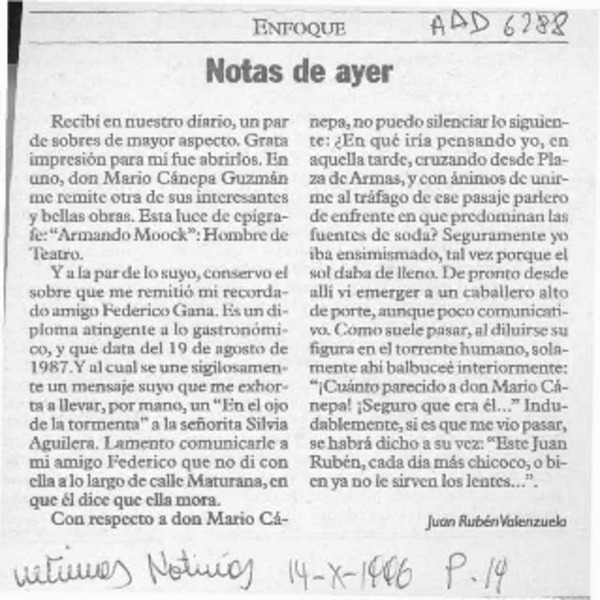 ENFOQUE
AAD 6288
Notas de ayer
Recibí en nuestro diario, un par
de sobres de mayor aspecto. Grata
impresión para mí fue abrirlos. En
uno, don Mario Cánepa Guzmán
me remite otra de sus interesantes
y bellas obras. Esta luce de epígra-
fe: "Armando Moock": Hombre de
Teatro.
Y a la par de lo suyo, conservo el
sobre que me remitió mi recorda-
do amigo Federico Gana. Es un di-
ploma atingente a lo gastronómi-
co, y que data del 19 de agosto de
1987. Y al cual se une sigilosamen-
te un mensaje suyo que me exhor-
ta a llevar, por mano, un "En el ojo
de la tormenta" a la señorita Silvia
Aguilera. Lamento comunicarle a
mi amigo Federico que no di con
ella a lo largo de calle Maturana, en
que él dice que ella mora.
Con respecto a don Mario Cá-
nepa, no puedo silenciar lo siguien-
te: ¿En qué iría pensando yo, en
aquella tarde, cruzando desde Pla-
za de Armas, y con ánimos de unir-
me al tráfago de ese pasaje parlero
de enfrente en que predominan las
fuentes de soda? Seguramente yo
iba ensimismado, tal vez porque el
sol daba de lleno. De pronto desde
allí vi emerger a un caballero alto
de porte, aunque poco comunicati-
vo. Como suele pasar, al diluirse su
figura en el torrente humano, sola-
mente ahí balbuceé interiormente:
"¡Cuánto parecido a don Mario Cá-
nepa! ¡Seguro que era él..." Indu-
dablemente, si es que me vio pasar,
se habrá dicho a su vez: "Este Juan
Rubén, cada día más chicoco, o bi-
en ya no le sirven los lentes...".
Juan Rubén Valenzuela
Ultimas Noticias 14-X-1996 P. 14